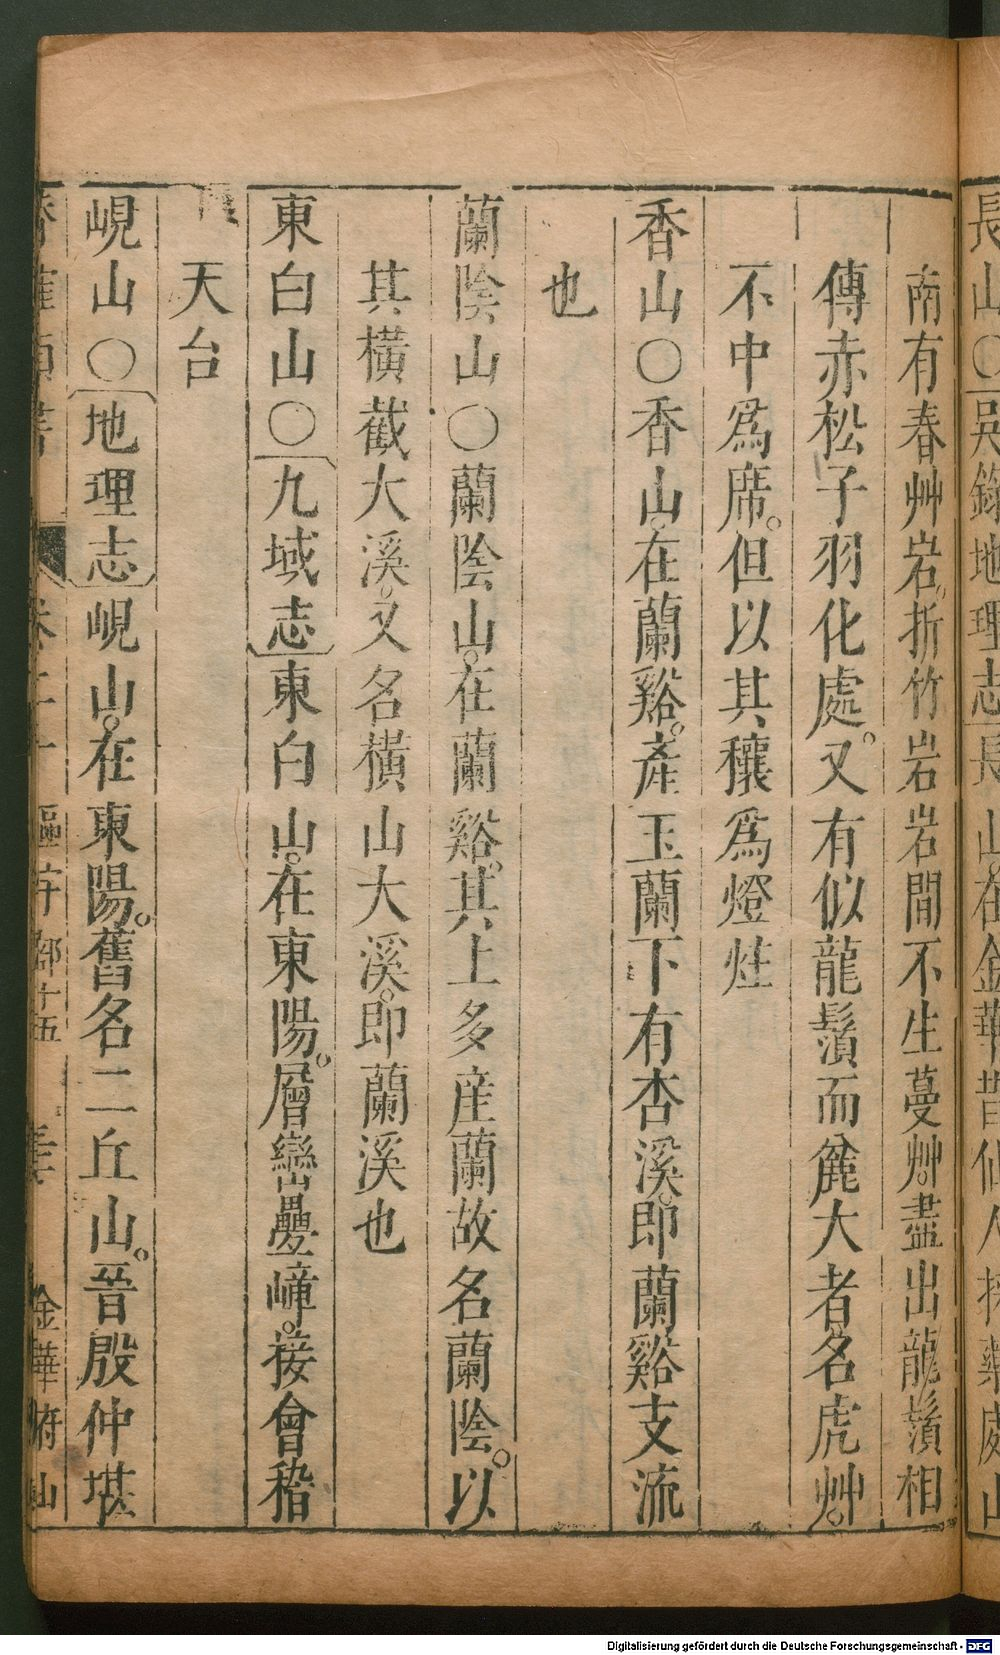 長山○吳錄地理志長山在金華昔仙人採藥處山
南有春艸岩。折竹岩岩間不生蔓艸。盡出龍鬚相
傳赤松子羽化處。又有似龍鬚而麄大者名虎艸。
不中爲席。但以其穰爲燈炷
香山○香山。在蘭谿。產玉蘭下有杏溪。即蘭谿支流
也
蘭陰山○蘭陰山。在蘭谿。其上多産蘭故名蘭陰。以
其橫截大溪。又名橫山大溪。即蘭溪也
東白山○九域志東白山。在東陽。層巒疊嶂。接會稽
天台
峴山○地理志峴山。在東陽。舊名二丘山。晉殷仲堪
卷二十 區宇部十五 金華府山
Digitalisierung gefördert durch die Deutsche Forschungsgemeinschaft - DFG